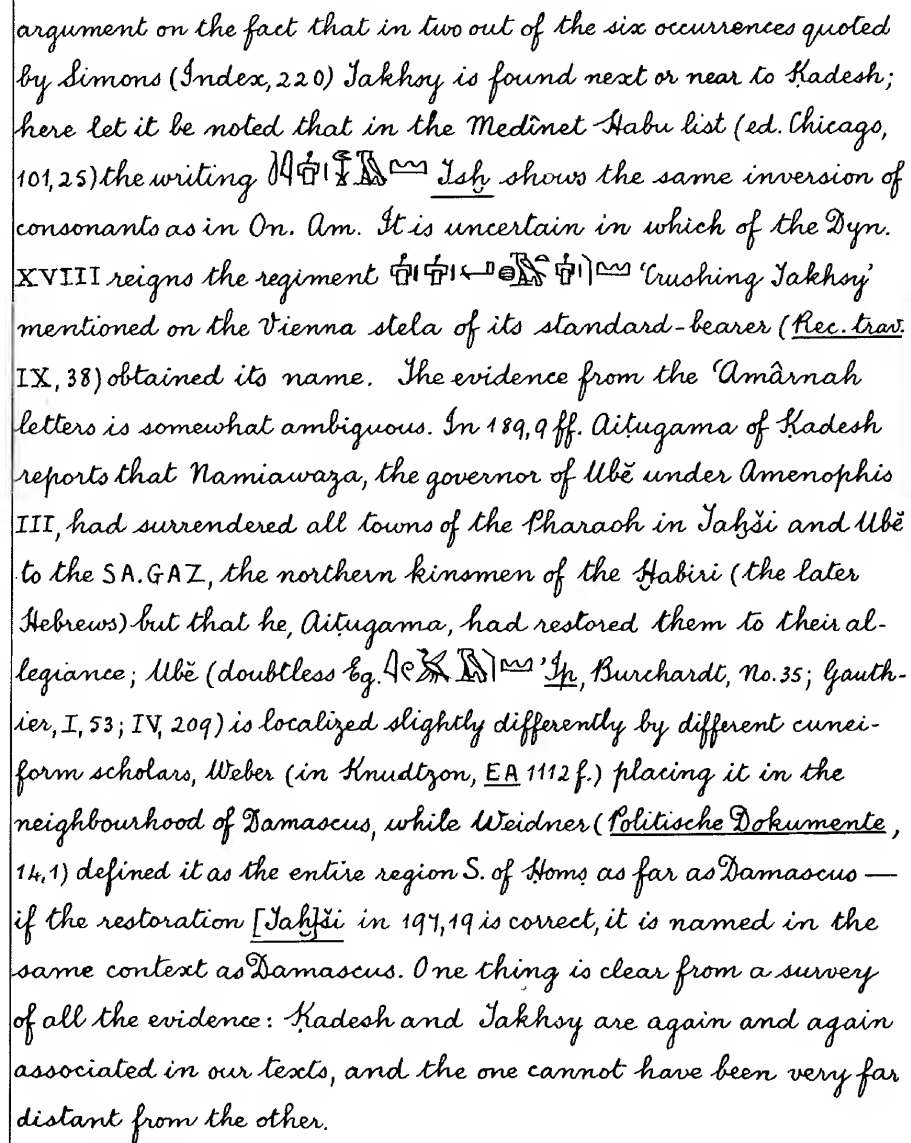 argument on the fact that in two out of the six occurrences quoted
by Simons (Index, 220) Takhsy is found next or near to Ḳadesh;
here let it be noted that in the Medînet Habu list (ed. Chicago,
101,25) the writing Tsḫ shows the same inversion of
consonants as in On. Am. It is uncertain in which of the Dyn.
XVIII reigns the regiment 'Crushing Takhsy'
mentioned on the Vienna stela of its standard-bearer (Rec. trav.
IX, 38) obtained its name. The evidence from the ʿAmârnah
letters is somewhat ambiguous. In 189,9 ff. Aiṭugama of Ḳadesh
reports that Namiawaza, the governor of Ubĕ under Amenophis
III, had surrendered all towns of the Pharaoh in Taḫši and Ubĕ
to the SA.GAZ, the northern kinsmen of the Ḫabiri (the later
Hebrews) but that he, Aiṭugama, had restored them to their al-
legiance; Ubĕ (doubtless Eg. ʾIp, Burchardt, No. 35; Gauth-
ier, I, 53; IV, 209) is localized slightly differently by different cunei-
form scholars, Weber (in Knudtzon, EA 1112 f.) placing it in the
neighbourhood of Damascus, while Weidner (Politische Dokumente,
14,1) defined it as the entire region S. of Ḥomṣ as far as Damascus —
if the restoration [Taḫ]ši in 197,19 is correct, it is named in the
same context as Damascus. One thing is clear from a survey
of all the evidence: Ḳadesh and Takhsy are again and again
associated in our texts, and the one cannot have been very far
distant from the other.